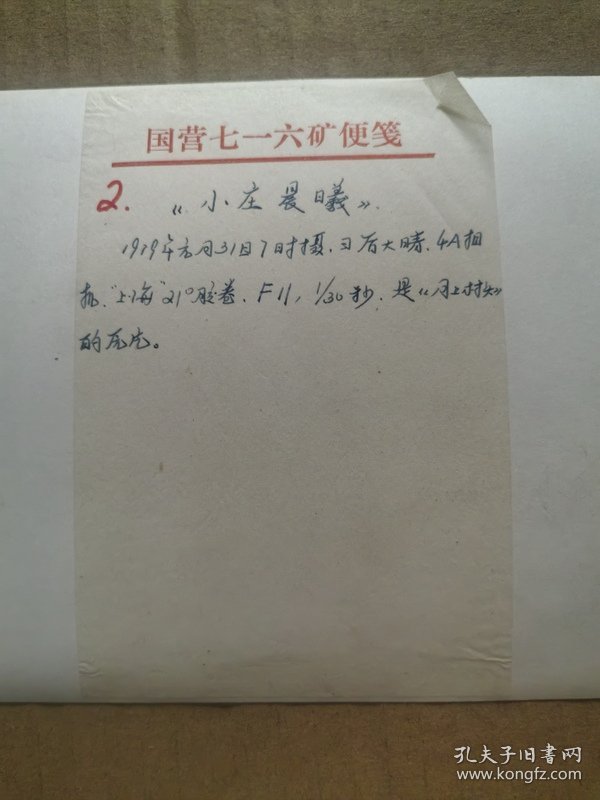 国营七一六矿便笺
2. 《小庄晨曦》.
1979年元月31日7时摄.雪后大晴.4A相
机."上海"21°胶卷.F11,1/30秒.是《月上村头》
的底片。
孔夫子旧书网
www.kongfz.com